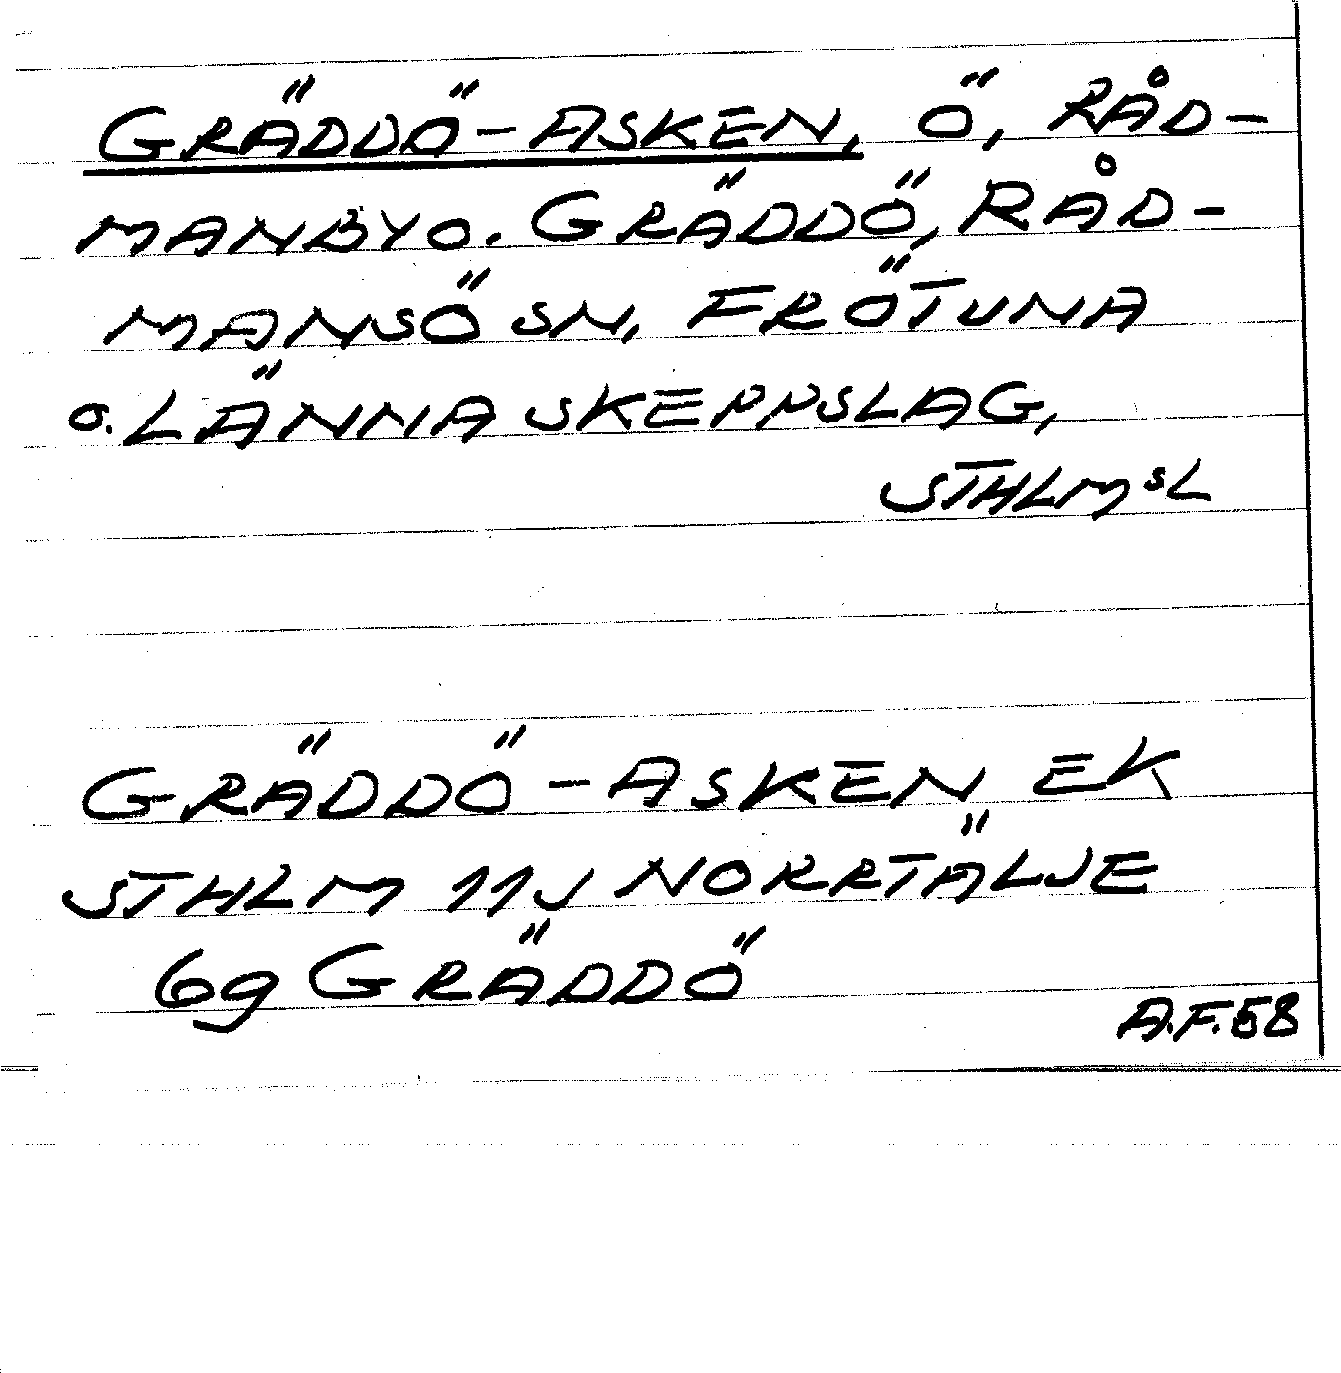 GRÄDDÖ-ASKEN, Ö, RÅD-
MANBY O. GRÄDDÖ, RÅD-
MANSÖ SN, FRÖTUNA
O. LÄNNA SKEPPSLAG,
STHLMSL
GRÄDDÖ-ASKEN EK
STHLM 11J NORRTÄLJE
6g GRÄDDÖ
A.F.58